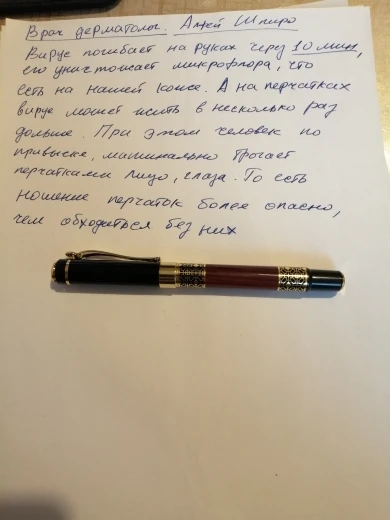 Врач дерматолог. Алжей Шпиро
Вирус погибает на руках через 10 мин,
его уничтожает микрофлора, что
есть на нашей коже. А на перчатках
вирус может жить в несколько раз
дольше. При этом человек по
привыске, машинально трогает
перчатками лицо, глаза. То есть
ношение перчаток более опасно,
чем обходиться без них